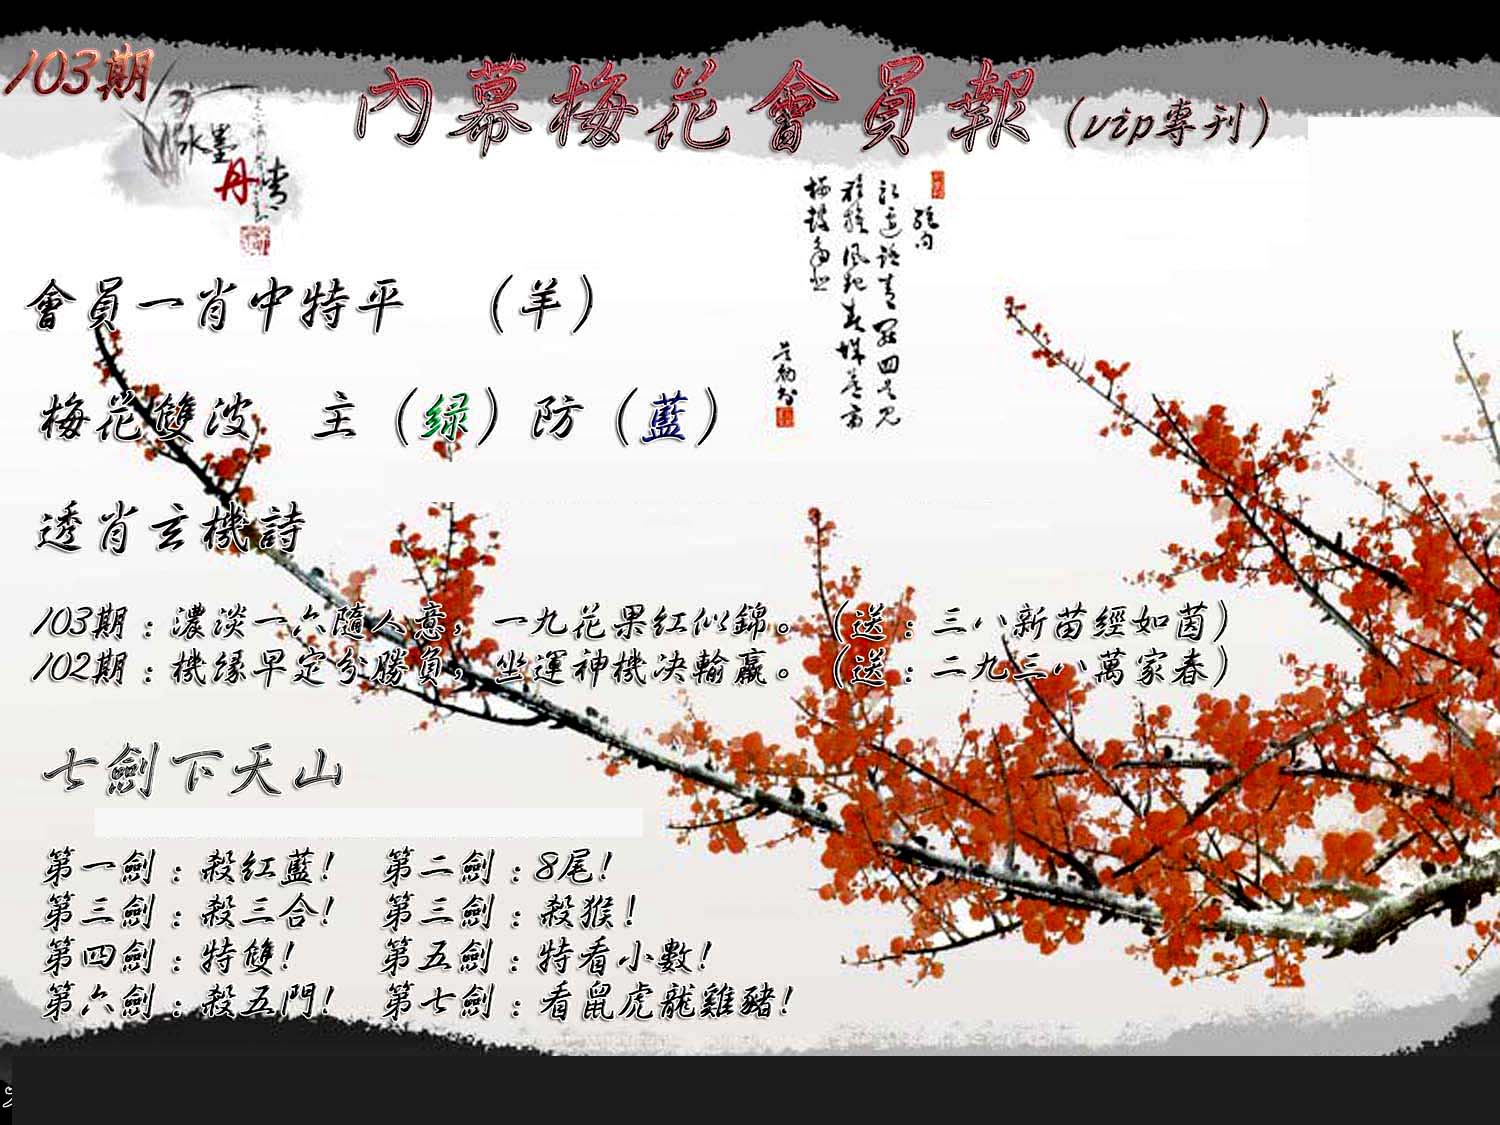 103期
內幕梅花會員報(vip專刊)
水墨
丹青
會員一肖中特平 （羊）
梅花雙波 主（绿）防（藍）
透肖玄機詩
103期：濃淡一六隨人意，一九花果紅似錦。（送：三八新苗經如茵）
102期：機緣早定分勝負，坐運神機决輸贏。（送：二九三八萬家春）
七劍下天山
第一劍：殺紅藍! 第二劍：8尾!
第三劍：殺三合! 第三劍：殺猴!
第四劍：特雙! 第五劍：特看小數!
第六劍：殺五門! 第七劍：看鼠虎龍雞豬!